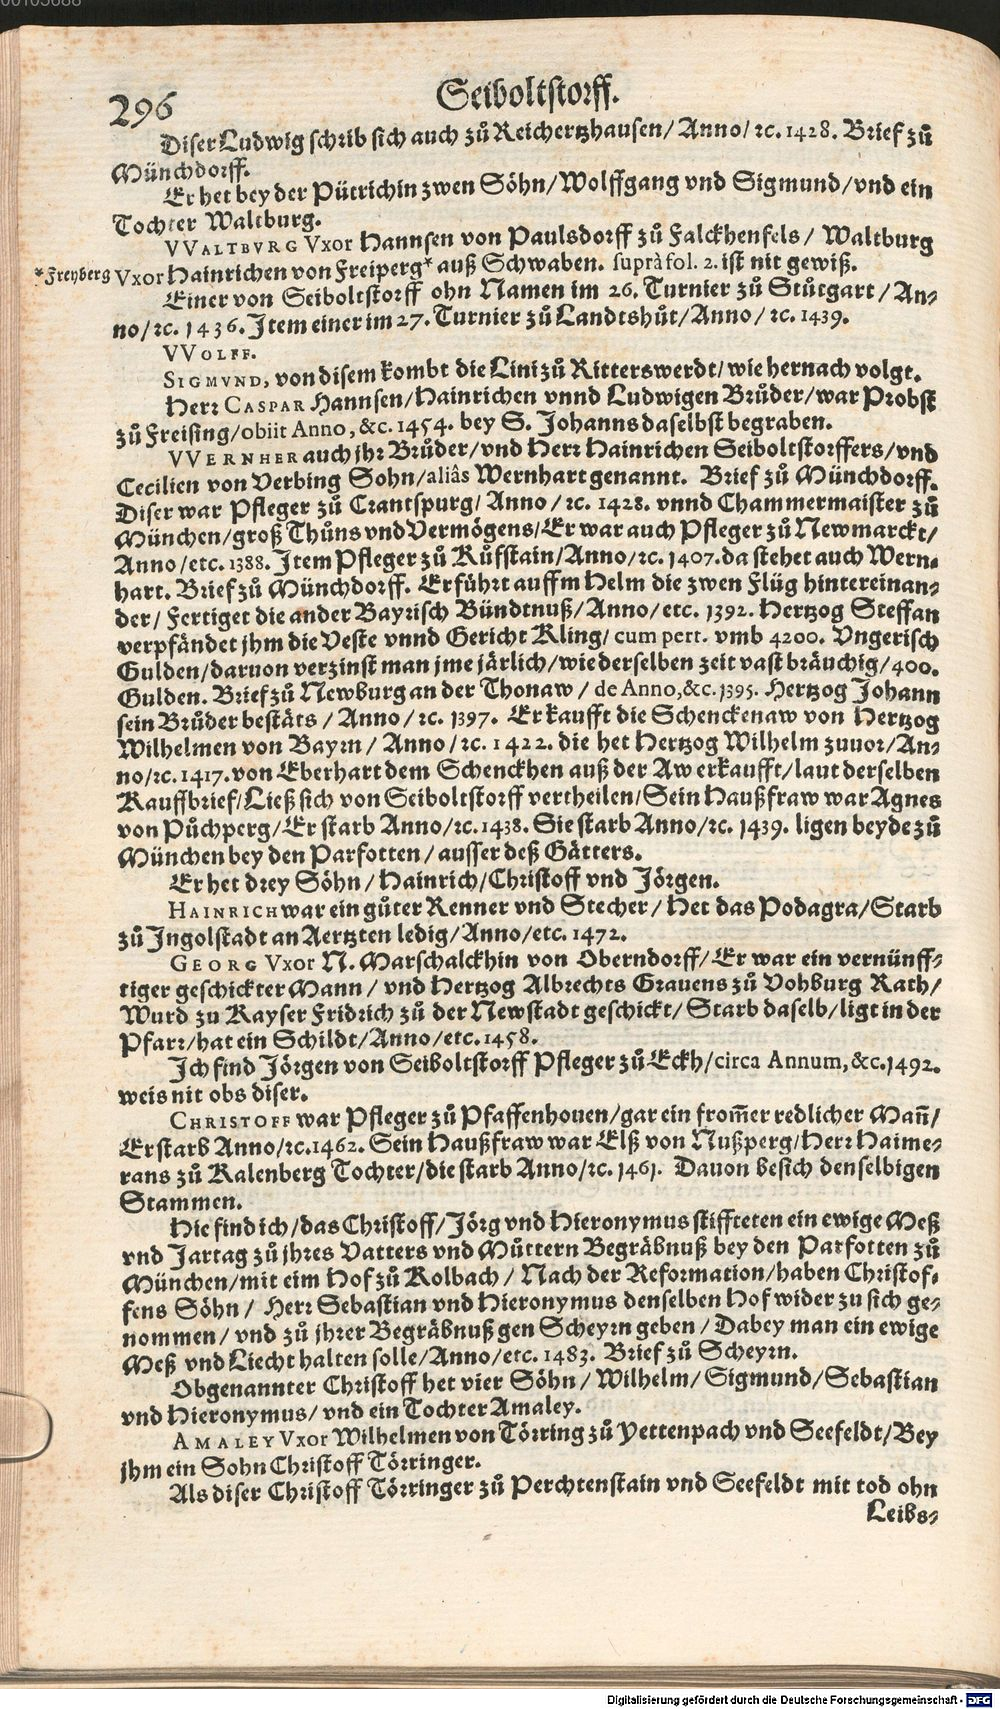 296
Seiboltstorff.
Diser Ludwig schrib sich auch zů Reichertzhausen/ Anno/ ꝛc. 1428. Brief zů
Münchdorff.
Er het bey der Pütrichin zwen Söhn/ Wolffgang vnd Sigmund/ vnd ein
Tochter Waltburg.
VVALTBVRG Vxor Hannsen von Paulsdorff zů Falckhenfels/ Waltburg
*Freyberg Vxor Hainrichen von Freiperg* auß Schwaben. suprà fol. 2. ist nit gewiß.
Einer von Seiboltstorff ohn Namen im 26. Turnier zů Stůtgart/ An-
no/ ꝛc. 1436. Item einer im 27. Turnier zů Landtshůt/ Anno/ ꝛc. 1439.
VVOLFF.
SIGMVND, von disem kombt die Lini zů Ritterswerdt/ wie hernach volgt.
Herr CASPAR Hannsen/ Hainrichen vnnd Ludwigen Brůder/ war Probst
zů Freising/ obiit Anno, &c. 1454. bey S. Johanns daselbst begraben.
VVERNHER auch jhr Brůder/ vnd Herr Hainrichen Seiboltstorffers/ vnd
Cecilien von Verbing Sohn/ aliâs Wernhart genannt. Brief zů Münchdorff.
Diser war Pfleger zů Crantspurg/ Anno/ ꝛc. 1428. vnnd Chammermaister zů
München/ groß Thůns vnd Vermögens/ Er war auch Pfleger zů Newmarckt/
Anno/ etc. 1388. Item Pfleger zů Kůfstain/ Anno/ ꝛc. 1407. da stehet auch Wern-
hart. Brief zů Münchdorff. Er führt auffm Helm die zwen Flüg hintereinan-
der/ Fertiget die ander Bayrisch Bündtnuß/ Anno/ etc. 1392. Hertzog Steffan
verpfändet jhm die Veste vnnd Gericht Kling/ cum pert. vmb 4200. Vngerisch
Gulden/ daruon verzinst man jme järlich/ wie derselben zeit vast bräuchig/ 400.
Gulden. Brief zů Newburg an der Thonaw/ de Anno, &c. 1395. Hertzog Johann
sein Brůder bestäts/ Anno/ ꝛc. 1397. Er kaufft die Schenckenaw von Hertzog
Wilhelmen von Bayrn/ Anno/ ꝛc. 1422. die het Hertzog Wilhelm zuuor/ An-
no/ ꝛc. 1417. von Eberhart dem Schenckhen auß der Aw erkaufft/ laut derselben
Kauffbrief/ Ließ sich von Seiboltstorff vertheilen/ Sein Haußfraw war Agnes
von Půchperg/ Er starb Anno/ ꝛc. 1438. Sie starb Anno/ ꝛc. 1439. ligen beyde zů
München bey den Parfotten/ ausser deß Gätters.
Er het drey Söhn/ Hainrich/ Christoff vnd Jörgen.
HAINRICH war ein gůter Renner vnd Stecher/ Het das Podagra/ Starb
zů Ingolstadt an Aertzten ledig/ Anno/ etc. 1472.
GEORG Vxor N. Marschalckhin von Oberndorff/ Er war ein vernünff-
tiger geschickter Mann/ vnd Hertzog Albrechts Grauens zů Vohburg Rath/
Wurd zu Kayser Fridrich zů der Newstadt geschickt/ Starb daselb/ ligt in der
Pfarr/ hat ein Schildt/ Anno/ etc. 1458.
Ich find Jörgen von Seiboltstorff Pfleger zů Eckh/ circa Annum, &c. 1492.
weis nit obs diser.
CHRISTOFF war Pfleger zů Pfaffenhouen/ gar ein from̃er redlicher Mañ/
Er starb Anno/ ꝛc. 1462. Sein Haußfraw war Elß von Nußperg/ Herr Haime-
rans zů Kalenberg Tochter/ die starb Anno/ ꝛc. 1461. Dauon besich denselbigen
Stammen.
Hie find ich/ das Christoff/ Jörg vnd Hieronymus stiffteten ein ewige Meß
vnd Jartag zů jhres Vatters vnd Můttern Begräbnuß bey den Parfotten zů
München/ mit eim Hof zů Kolbach/ Nach der Reformation/ haben Christof-
fens Söhn/ Herr Sebastian vnd Hieronymus denselben Hof wider zu sich ge-
nommen/ vnd zů jhrer Begräbnuß gen Scheyrn geben/ Dabey man ein ewige
Meß vnd Liecht halten solle/ Anno/ etc. 1483. Brief zů Scheyrn.
Obgenannter Christoff het vier Söhn/ Wilhelm/ Sigmund/ Sebastian
vnd Hieronymus/ vnd ein Tochter Amaley.
AMALEY Vxor Wilhelmen von Törring zů Yettenpach vnd Seefeldt/ Bey
jhm ein Sohn Christoff Törringer.
Als diser Christoff Törringer zů Perchtenstain vnd Seefeldt mit tod ohn
Leibs-
Digitalisierung gefördert durch die Deutsche Forschungsgemeinschaft - DFG